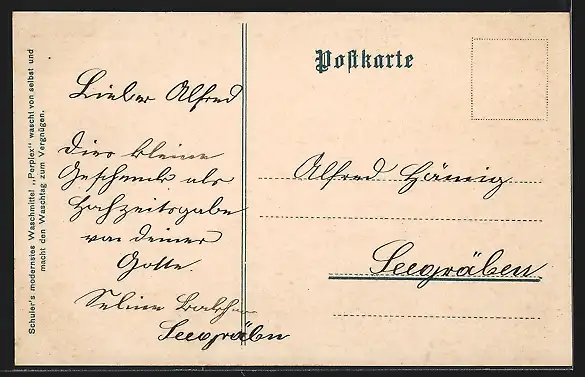 Schuler's modernstes Waschmittel „Perplex" wascht von selbst und
macht den Waschtag zum Vergnügen.
Postkarte
Lieber Alfred
Dies kleine
Geschenk als
Hochzeitsgabe
von deiner
Gotte.
Seline
Seegräben
Alfred
Seegräben